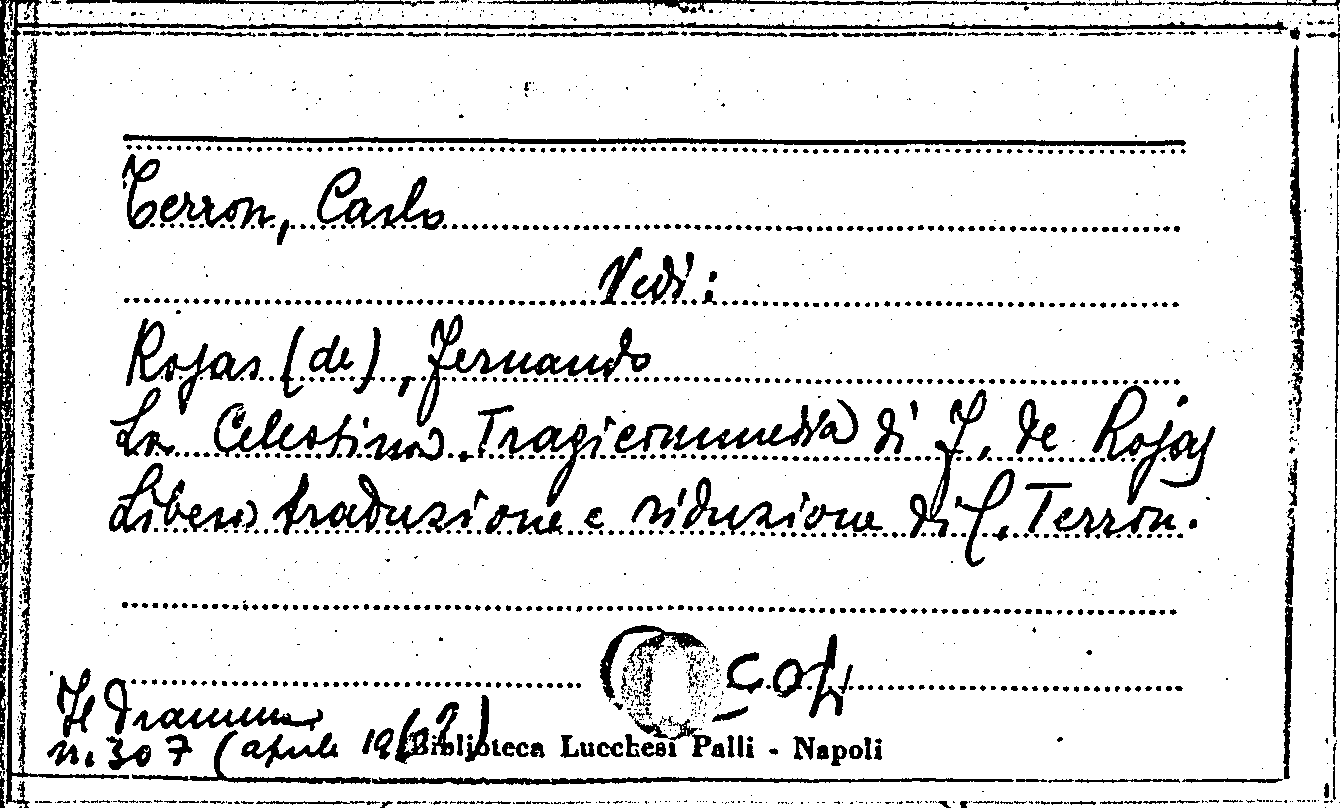 Terron, Carlo
Vedi:
Rojas (de), Fernando
La Celestina. Tragicommedia di F. de Rojas
Libera traduzione e riduzione di C. Terron.
Il Dramma
n. 307 (aprile 1962)
Biblioteca Lucchesi Palli - Napoli